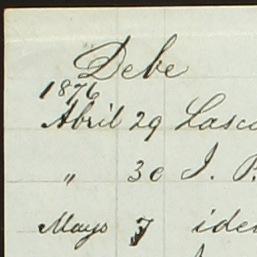 Debe
1876
Abril 29 Lasc
" 30 J. P.
Mayo 7 idem